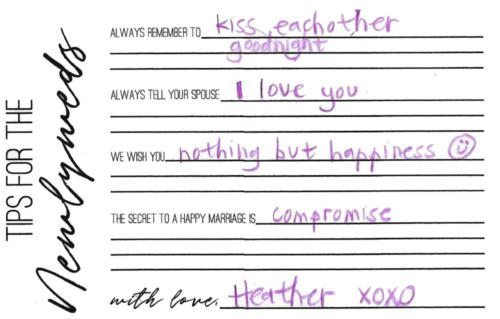 TIPS FOR THE
Newlyweds
ALWAYS REMEMBER TO kiss eachother
goodnight
ALWAYS TELL YOUR SPOUSE I love you
WE WISH YOU nothing but happiness
THE SECRET TO A HAPPY MARRIAGE IS compromise
with love, Heather xoxo